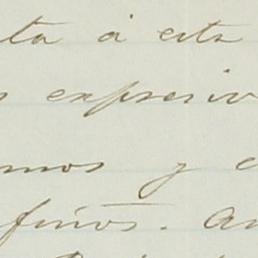 ta á esta
s expresiv
mos y c
fiños. An